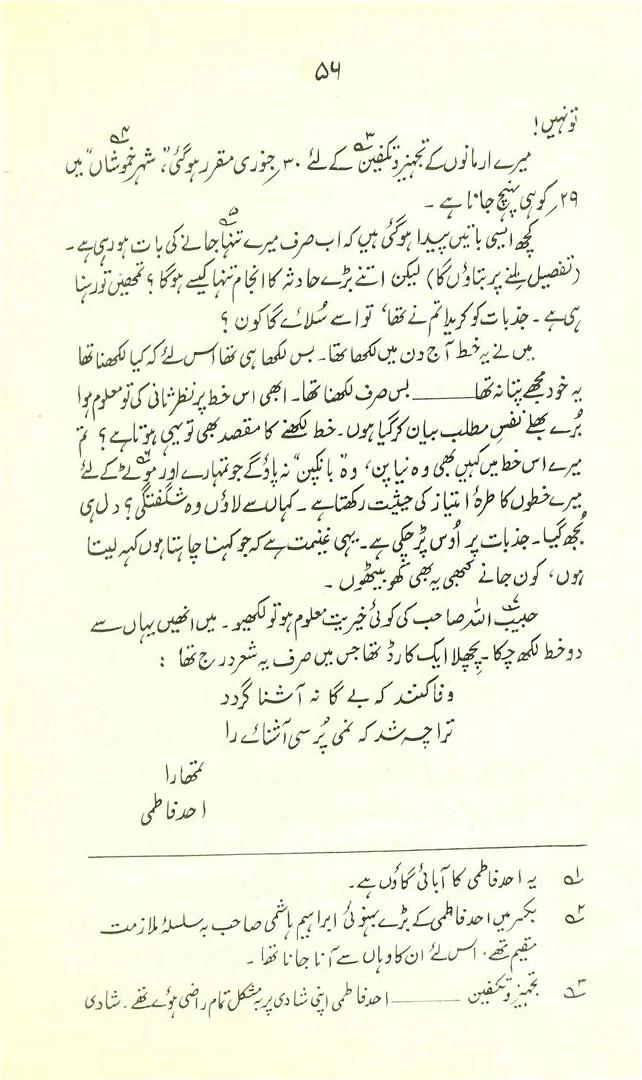 ۵۶
تو نہیں!
میرے ارمانوں کے تجہیز و تکفین۳ کے لئے ۳۰؍جنوری مقرر ہوگئی، "شہر خموشاں"۴ میں
۲۹؍کو ہی پہنچ جانا ہے۔
کچھ ایسی باتیں پیدا ہوگئی ہیں کہ اب صرف میرے تنہا۵ جانے کی بات ہو رہی ہے۔
(تفصیل ملنے پر بتاؤں گا) لیکن اتنے بڑے حادثہ کا انجام تنہا کیسے ہوگا؟ تمھیں تو رہنا
ہی ہے۔ جذبات کو کریدا تم نے تھا، تو اسے سُلائے گا کون؟
میں نے یہ خط آج دن میں لکھا تھا۔ بس لکھا ہی تھا اس لئے کہ کیا لکھنا تھا
یہ خود مجھے پتا نہ تھا ــــــــ بس صرف لکھنا تھا۔ ابھی اس خط پر نظر ثانی کی تو معلوم ہوا
بُرے بھلے نفسِ مطلب بیان کر گیا ہوں۔ خط لکھنے کا مقصد بھی تو یہی ہوتا ہے؟ تم
میرے اس خط میں کہیں بھی وہ نیا پن، وہ "بانکپن" نہ پاؤگے جو تمہارے اور کے لئے
میرے خطوں کا طرۂ امتیاز کی حیثیت رکھتا ہے۔ کہاں سے لاؤں وہ شگفتگی؟ دل ہی
بُجھ گیا۔ جذبات پر اُوس پڑ چکی ہے۔ یہی غنیمت ہے کہ جو کہنا چاہتا ہوں کہہ لیتا
ہوں، کون جانے کبھی یہ بھی کھو بیٹھوں۔
حبیب۷ اللہ صاحب کی کوئی خیریت معلوم ہو تو لکھیو۔ میں انھیں یہاں سے
دو خط لکھ چکا۔ پچھلا ایک کارڈ تھا جس میں صرف یہ شعر درج تھا :
وفا کنند کہ بے گا نہ آشنا گردد
ترا چہ شد کہ نمی پُرسی آشنائے را
تمھارا
احد فاطمی
۱؎ یہ احد فاطمی کا آبائی گاؤں ہے۔
۲؎ بکسر میں احد فاطمی کے بڑے بہنوئی ابراہیم ہاشمی صاحب بہ سلسلۂ ملازمت
مقیم تھے، اس لئے ان کا وہاں سے آنا جانا تھا۔
۳؎ تجہیز و تکفین ــــــــ احد فاطمی اپنی شادی پر بہ مشکل تمام راضی ہوئے تھے۔ شادی